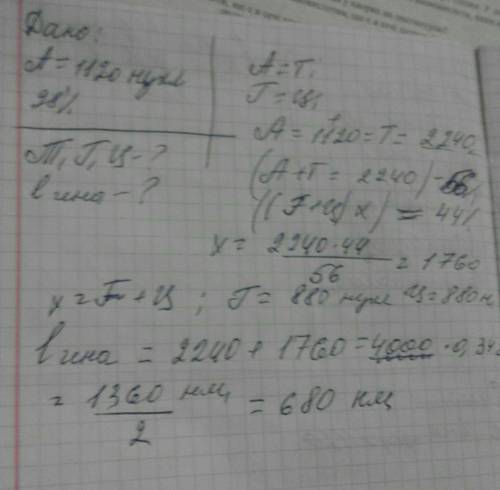 Дано:
А = 1120 нукл
98%
Т, Г, Ц - ?
l гена - ?
А = Т,
Г = Ц,
А = 1120 = Т = 2240
(А + Т = 2240) - 56%
((Г + Ц) х) = 44%
х = 2240 · 44 / 56 = 1760
х = Г + Ц ; Г = 880 нукл Ц = 880 н
l гена = 2240 + 1760 = 4000 · 0,34
= 1360 нм, / 2 = 680 нм